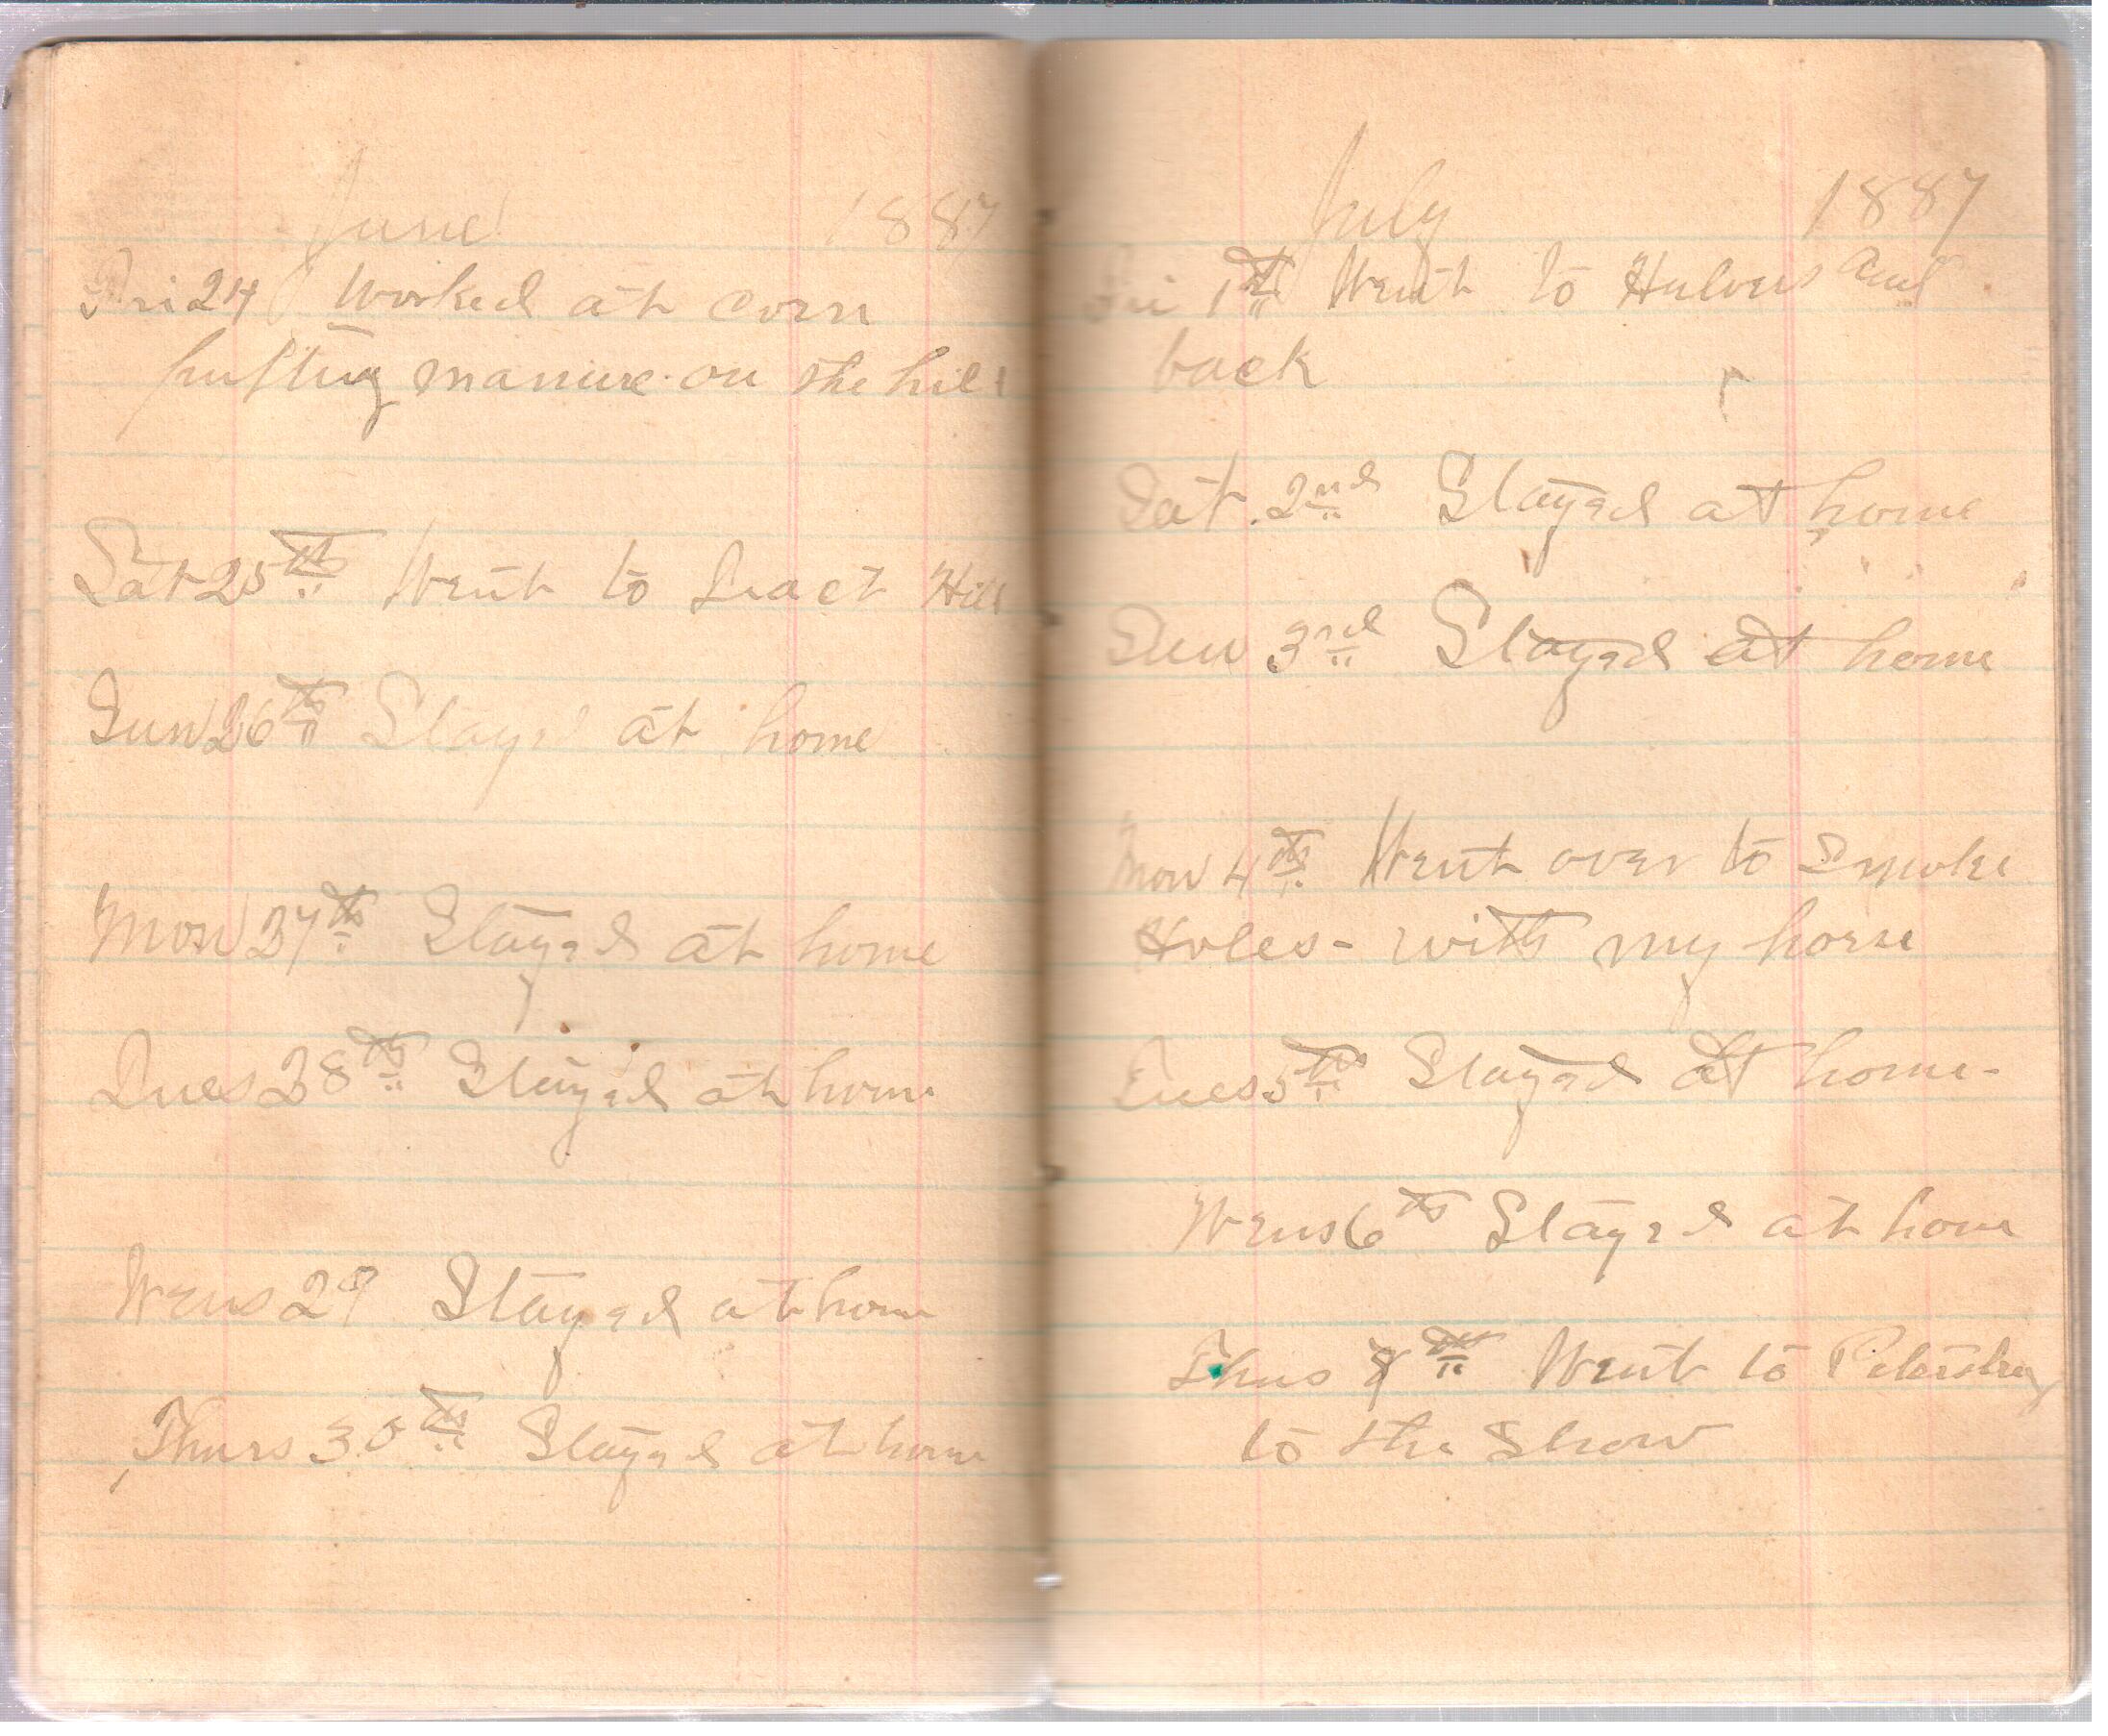 June 1887
Fri 24 Worked at corn
putting manure on the hill
Sat 25th Went to Hill
Sun 26th Stayed at home
Mon 27th Stayed at home
Tues 28th Stayed at home
Wens 29 Stayed at home
Thurs 30th Stayed at home
July 1887
Fri 1st Went to and
back
Sat. 2nd Stayed at home
Sun 3rd Stayed at home
Mon 4th Went over to Smoke
Holes - with my horse
Tues 5th Stayed at home -
Wens 6th Stayed at home
Thus 7th Went to Petersburg
to the Show